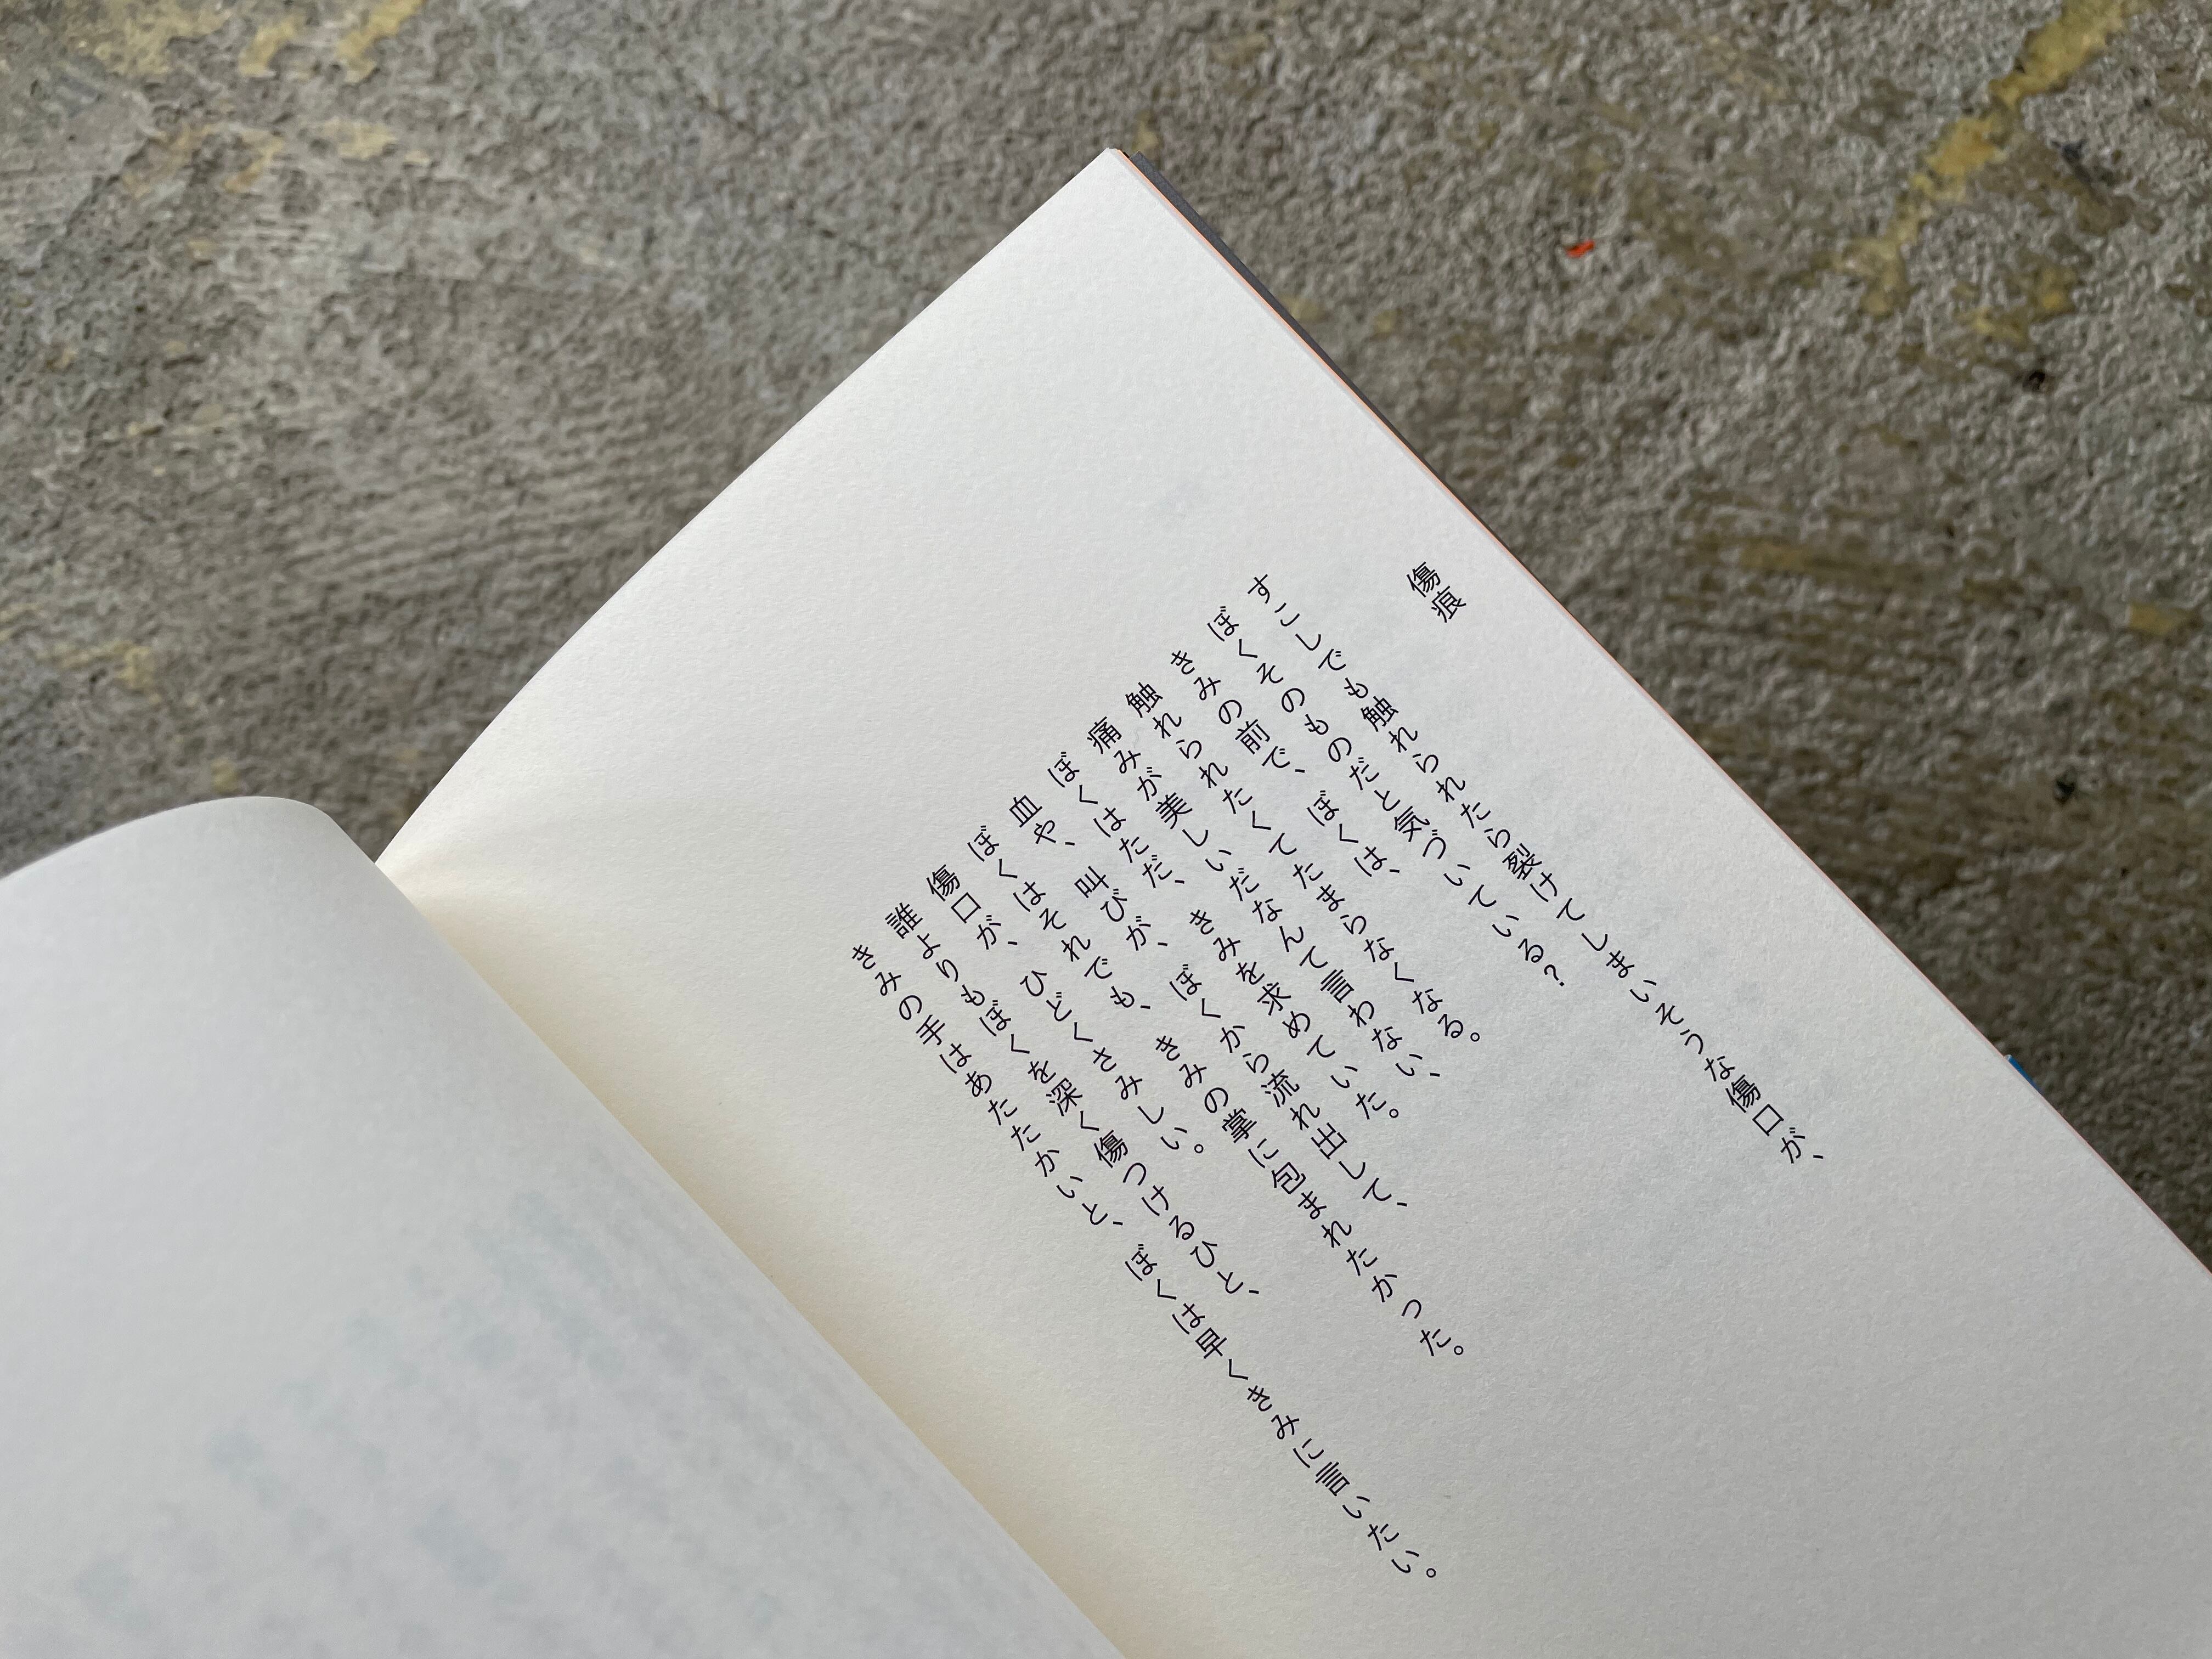 傷痕
すこしでも触れられたら裂けてしまいそうな傷口が、
ぼくそのものだと気づいている?
きみの前で、ぼくは、
触れられたくてたまらなくなる。
痛みが美しいだなんて言わない、
ぼくはただ、きみを求めていた。
血や、叫びが、ぼくから流れ出して、
ぼくはそれでも、きみの掌に包まれたかった。
傷口が、ひどくさみしい。
誰よりもぼくを深く傷つけるひと、
きみの手はあたたかいと、ぼくは早くきみに言いたい。